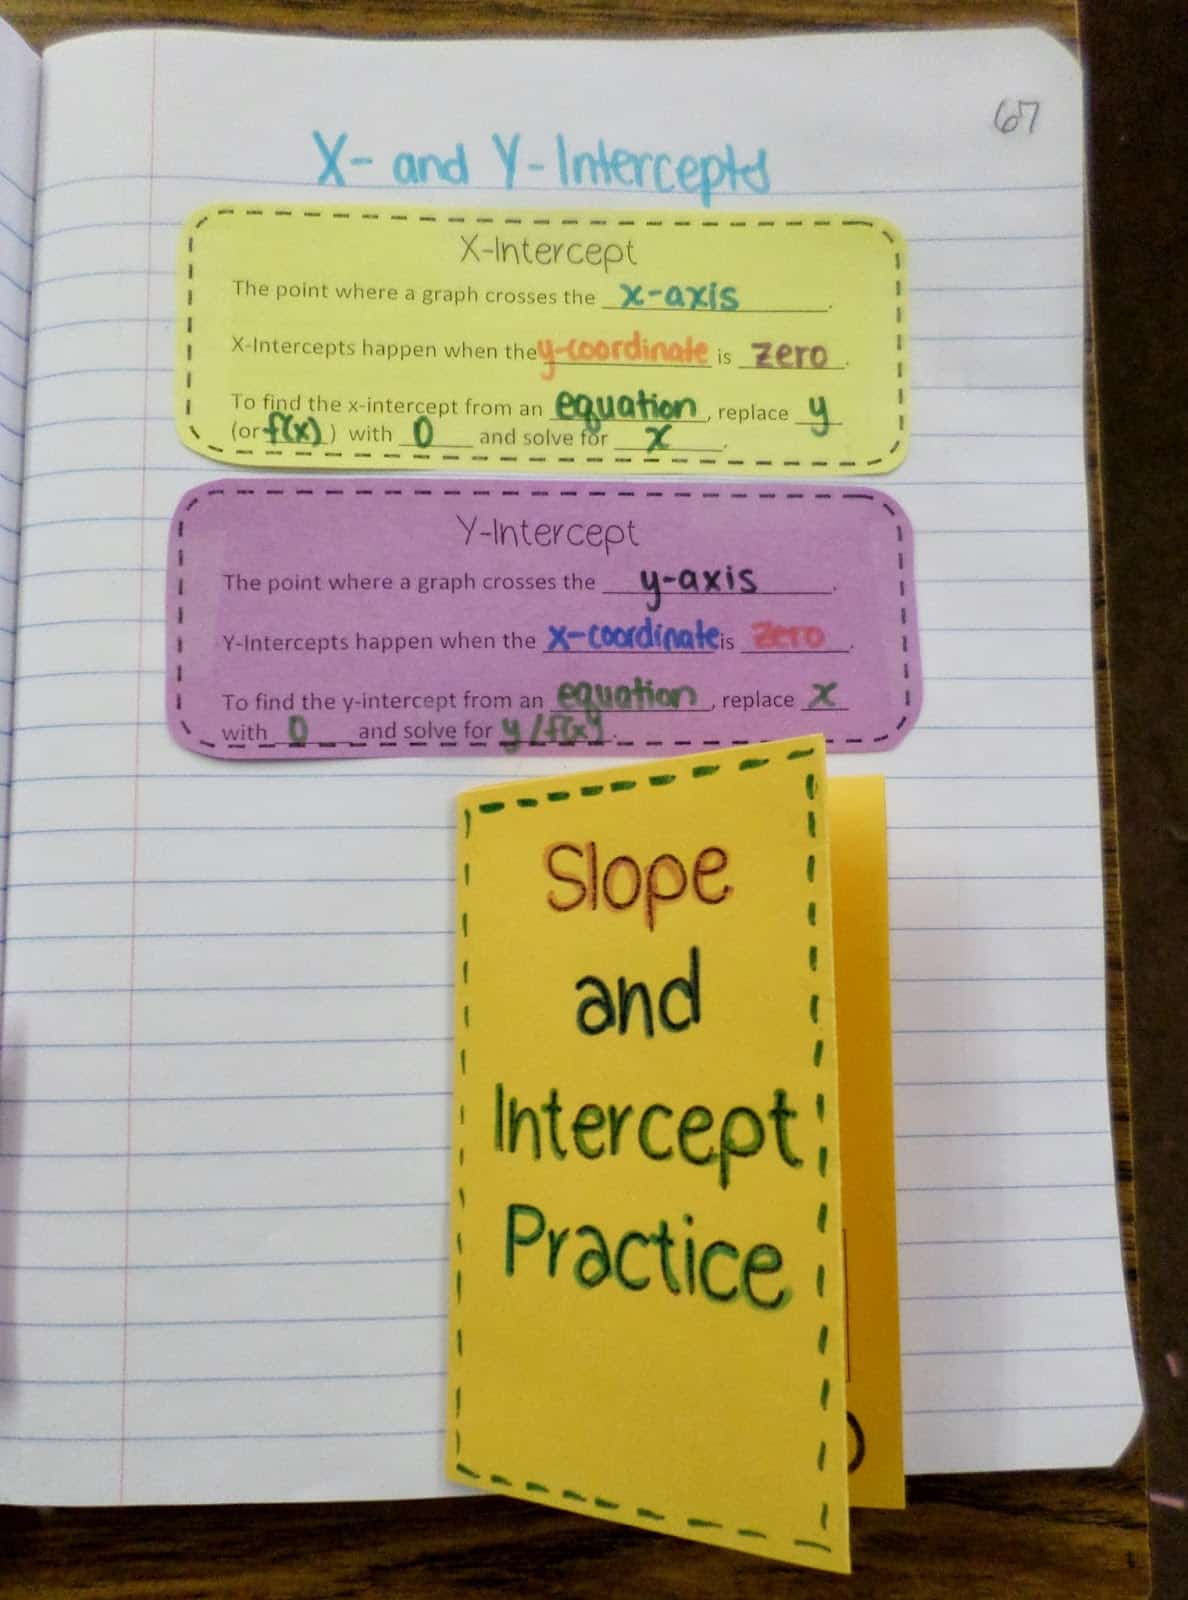 67
X- and Y-Intercepts
X-Intercept
The point where a graph crosses the x-axis.
X-Intercepts happen when the y-coordinate is zero.
To find the x-intercept from an equation, replace y
(or f(x)) with 0 and solve for x.
Y-Intercept
The point where a graph crosses the y-axis.
Y-Intercepts happen when the x-coordinate is zero.
To find the y-intercept from an equation, replace x
with 0 and solve for y/f(x).
Slope
and
Intercept
Practice